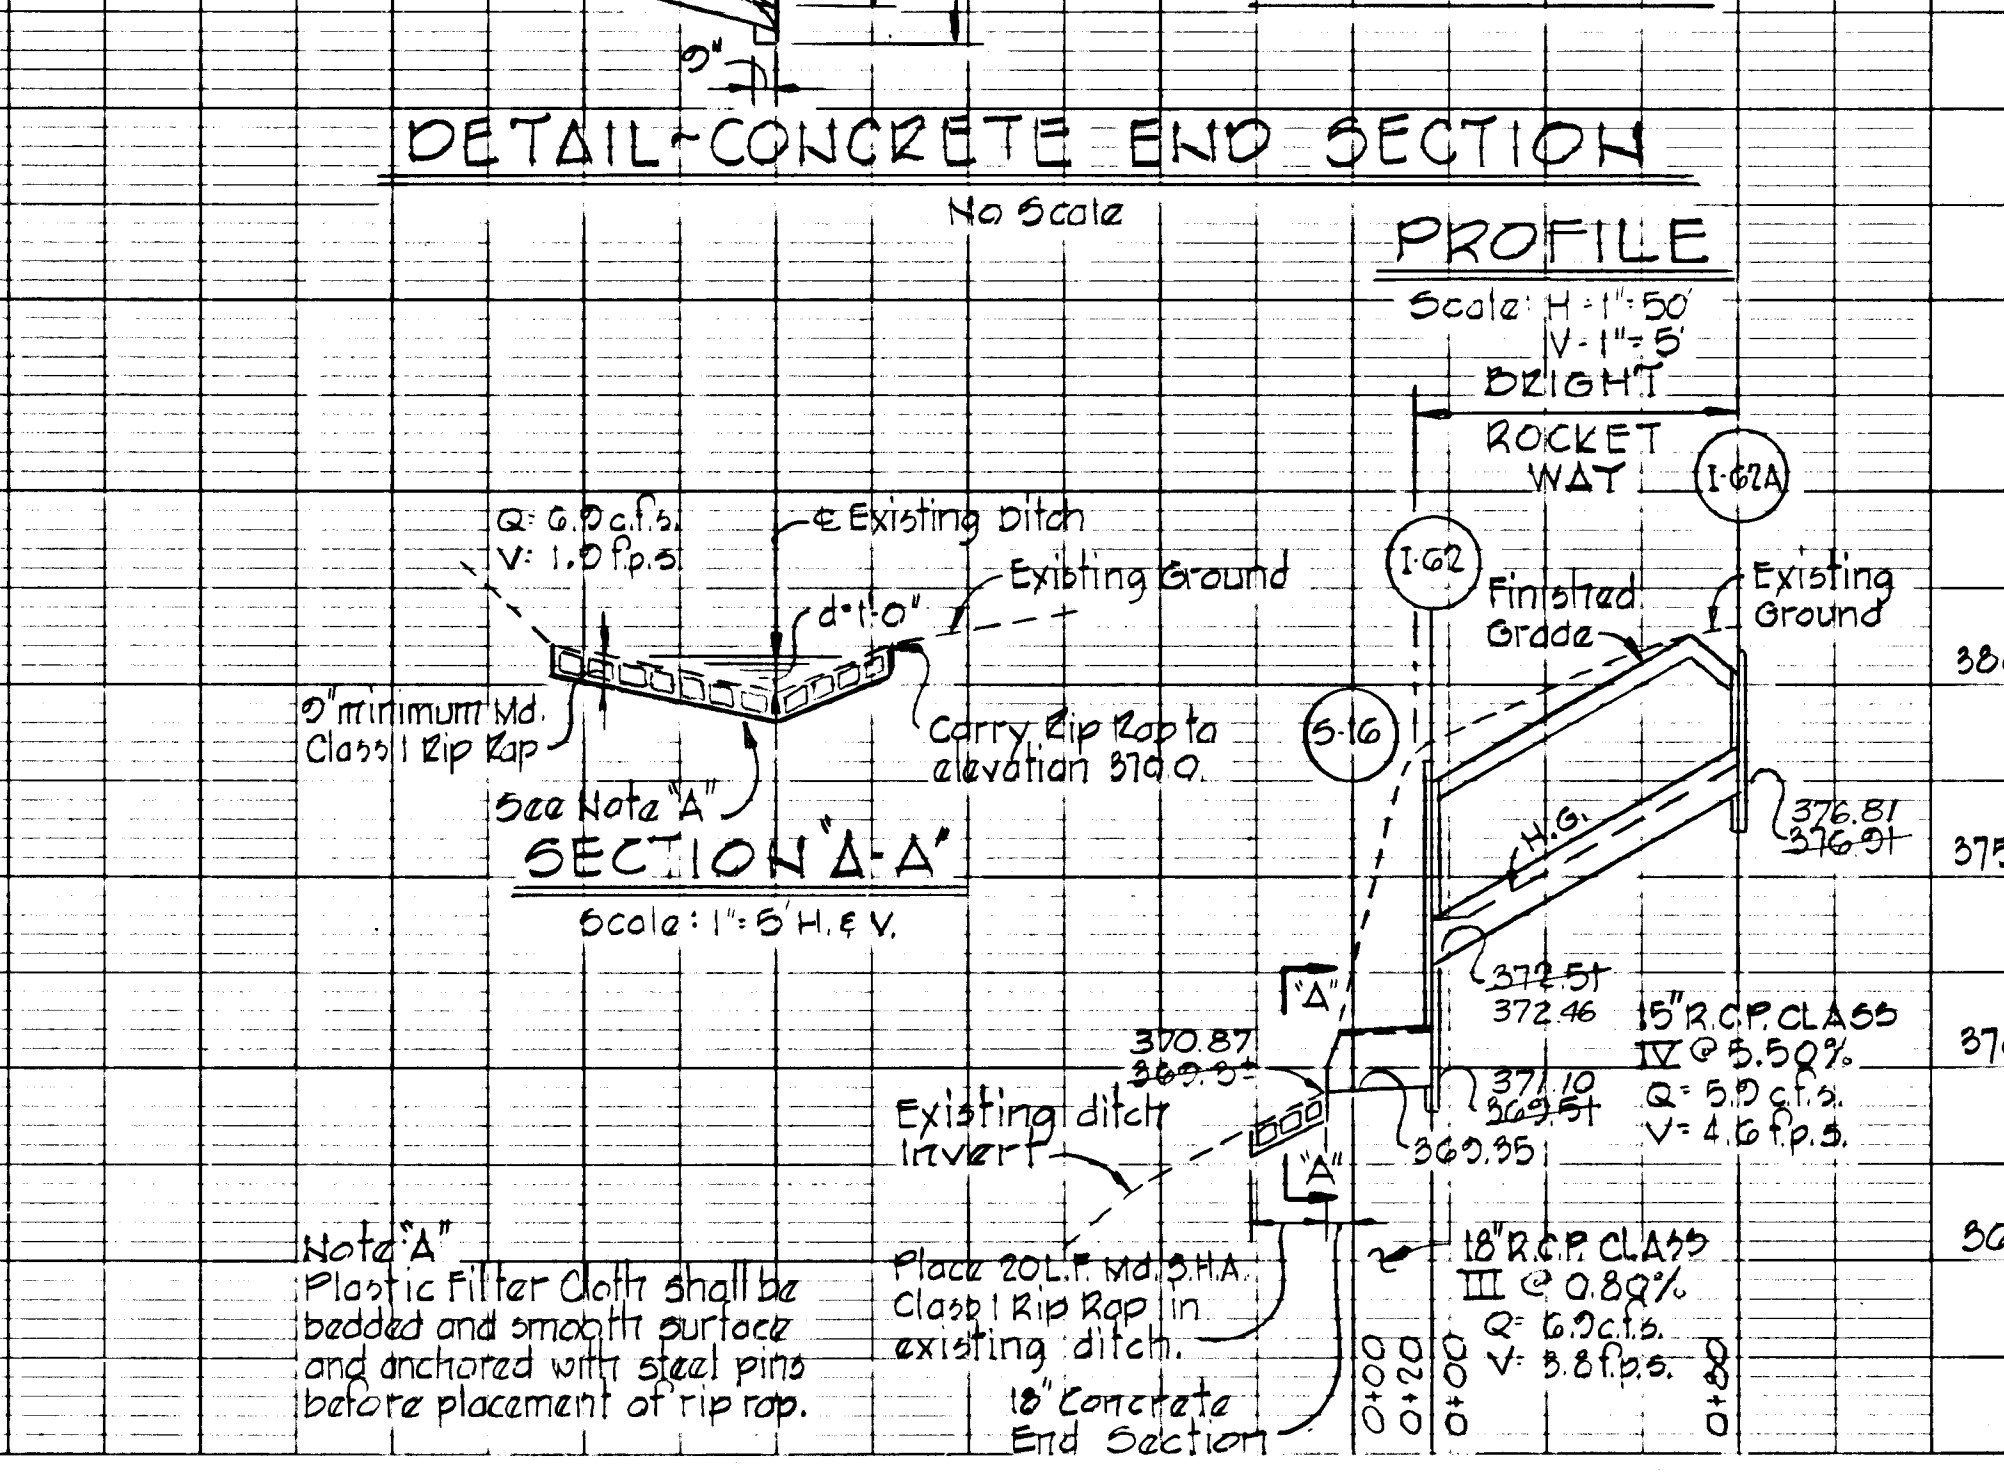 9"
DETAIL-CONCRETE END SECTION
No Scale
PROFILE
Scale: H = 1" = 50'
V = 1" = 5'
BRIGHT
ROCKET
WAY
I-62A
I-62
S-16
Q= 6.9 c.f.s.
V= 1.9 f.p.s.
℄ Existing Ditch
Existing Ground
d=1'-0"
9" minimum Md.
Class I Rip Rap
See Note "A"
Carry Rip Rap to
elevation 370.0.
SECTION "A-A"
Scale: 1" = 5' H. & V.
Finished
Grade
Existing
Ground
H.G.
376.81
376.91
372.51
372.46
15" R.C.P. CLASS
IV @ 5.50%
Q= 5.9 c.f.s.
V= 4.6 f.p.s.
"A"
370.87
369.3±
371.10
369.51
369.35
Existing ditch
Invert
"A"
Note "A"
Plastic Filter Cloth shall be
bedded and smooth surface
and anchored with steel pins
before placement of rip rap.
Place 20 L.F. Md. S.H.A.
Class I Rip Rap in
existing ditch.
18" Concrete
End Section
18" R.C.P. CLASS
III @ 0.80%
Q= 6.9 c.f.s.
V= 3.8 f.p.s.
0+00
0+20
0+00
0+80
375